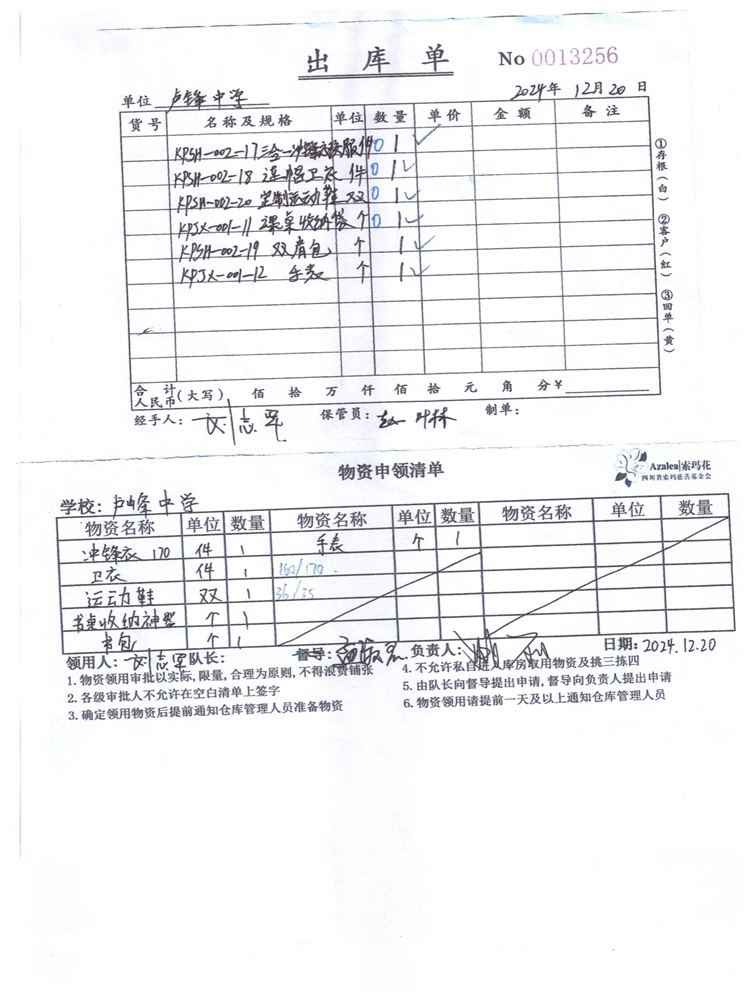 出库单 No 0013256
单位 卢锋中学 2024年 12月20日
货号 名称及规格 单位 数量 单价 金额 备注
KPSH-002-17 三合一冲锋衣 件 0 1 ✓
KPSH-002-18 连帽卫衣 件 0 1 ✓
KPSH-002-20 定制运动鞋 双 0 1 ✓
KPJX-001-11 课桌收纳袋 个 0 1 ✓
KPSH-002-19 双肩包 个 1 ✓
KPJX-001-12 手表 个 1 ✓
①存根(白) ②客户(红) ③回单(黄)
合计人民币(大写) 佰 拾 万 仟 佰 拾 元 角 分 ¥
经手人: 保管员: 制单:
物资申领清单
Azalea|索玛花
四川省索玛慈善基金会
学校: 卢峰中学
物资名称 单位 数量 物资名称 单位 数量 物资名称 单位 数量
冲锋衣 170 件 1 手表 个 1
卫衣 件 1 160/170
运动鞋 双 1 36/35
书桌收纳神器 个 1
书包 个 1
领用人: 队长: 督导: 负责人: 日期: 2024.12.20
1. 物资领用审批以实际, 限量, 合理为原则, 不得浪费铺张
4. 不允许私自进入库房取用物资及挑三拣四
2. 各级审批人不允许在空白清单上签字
5. 由队长向督导提出申请, 督导向负责人提出申请
3. 确定领用物资后提前通知仓库管理人员准备物资
6. 物资领用请提前一天及以上通知仓库管理人员